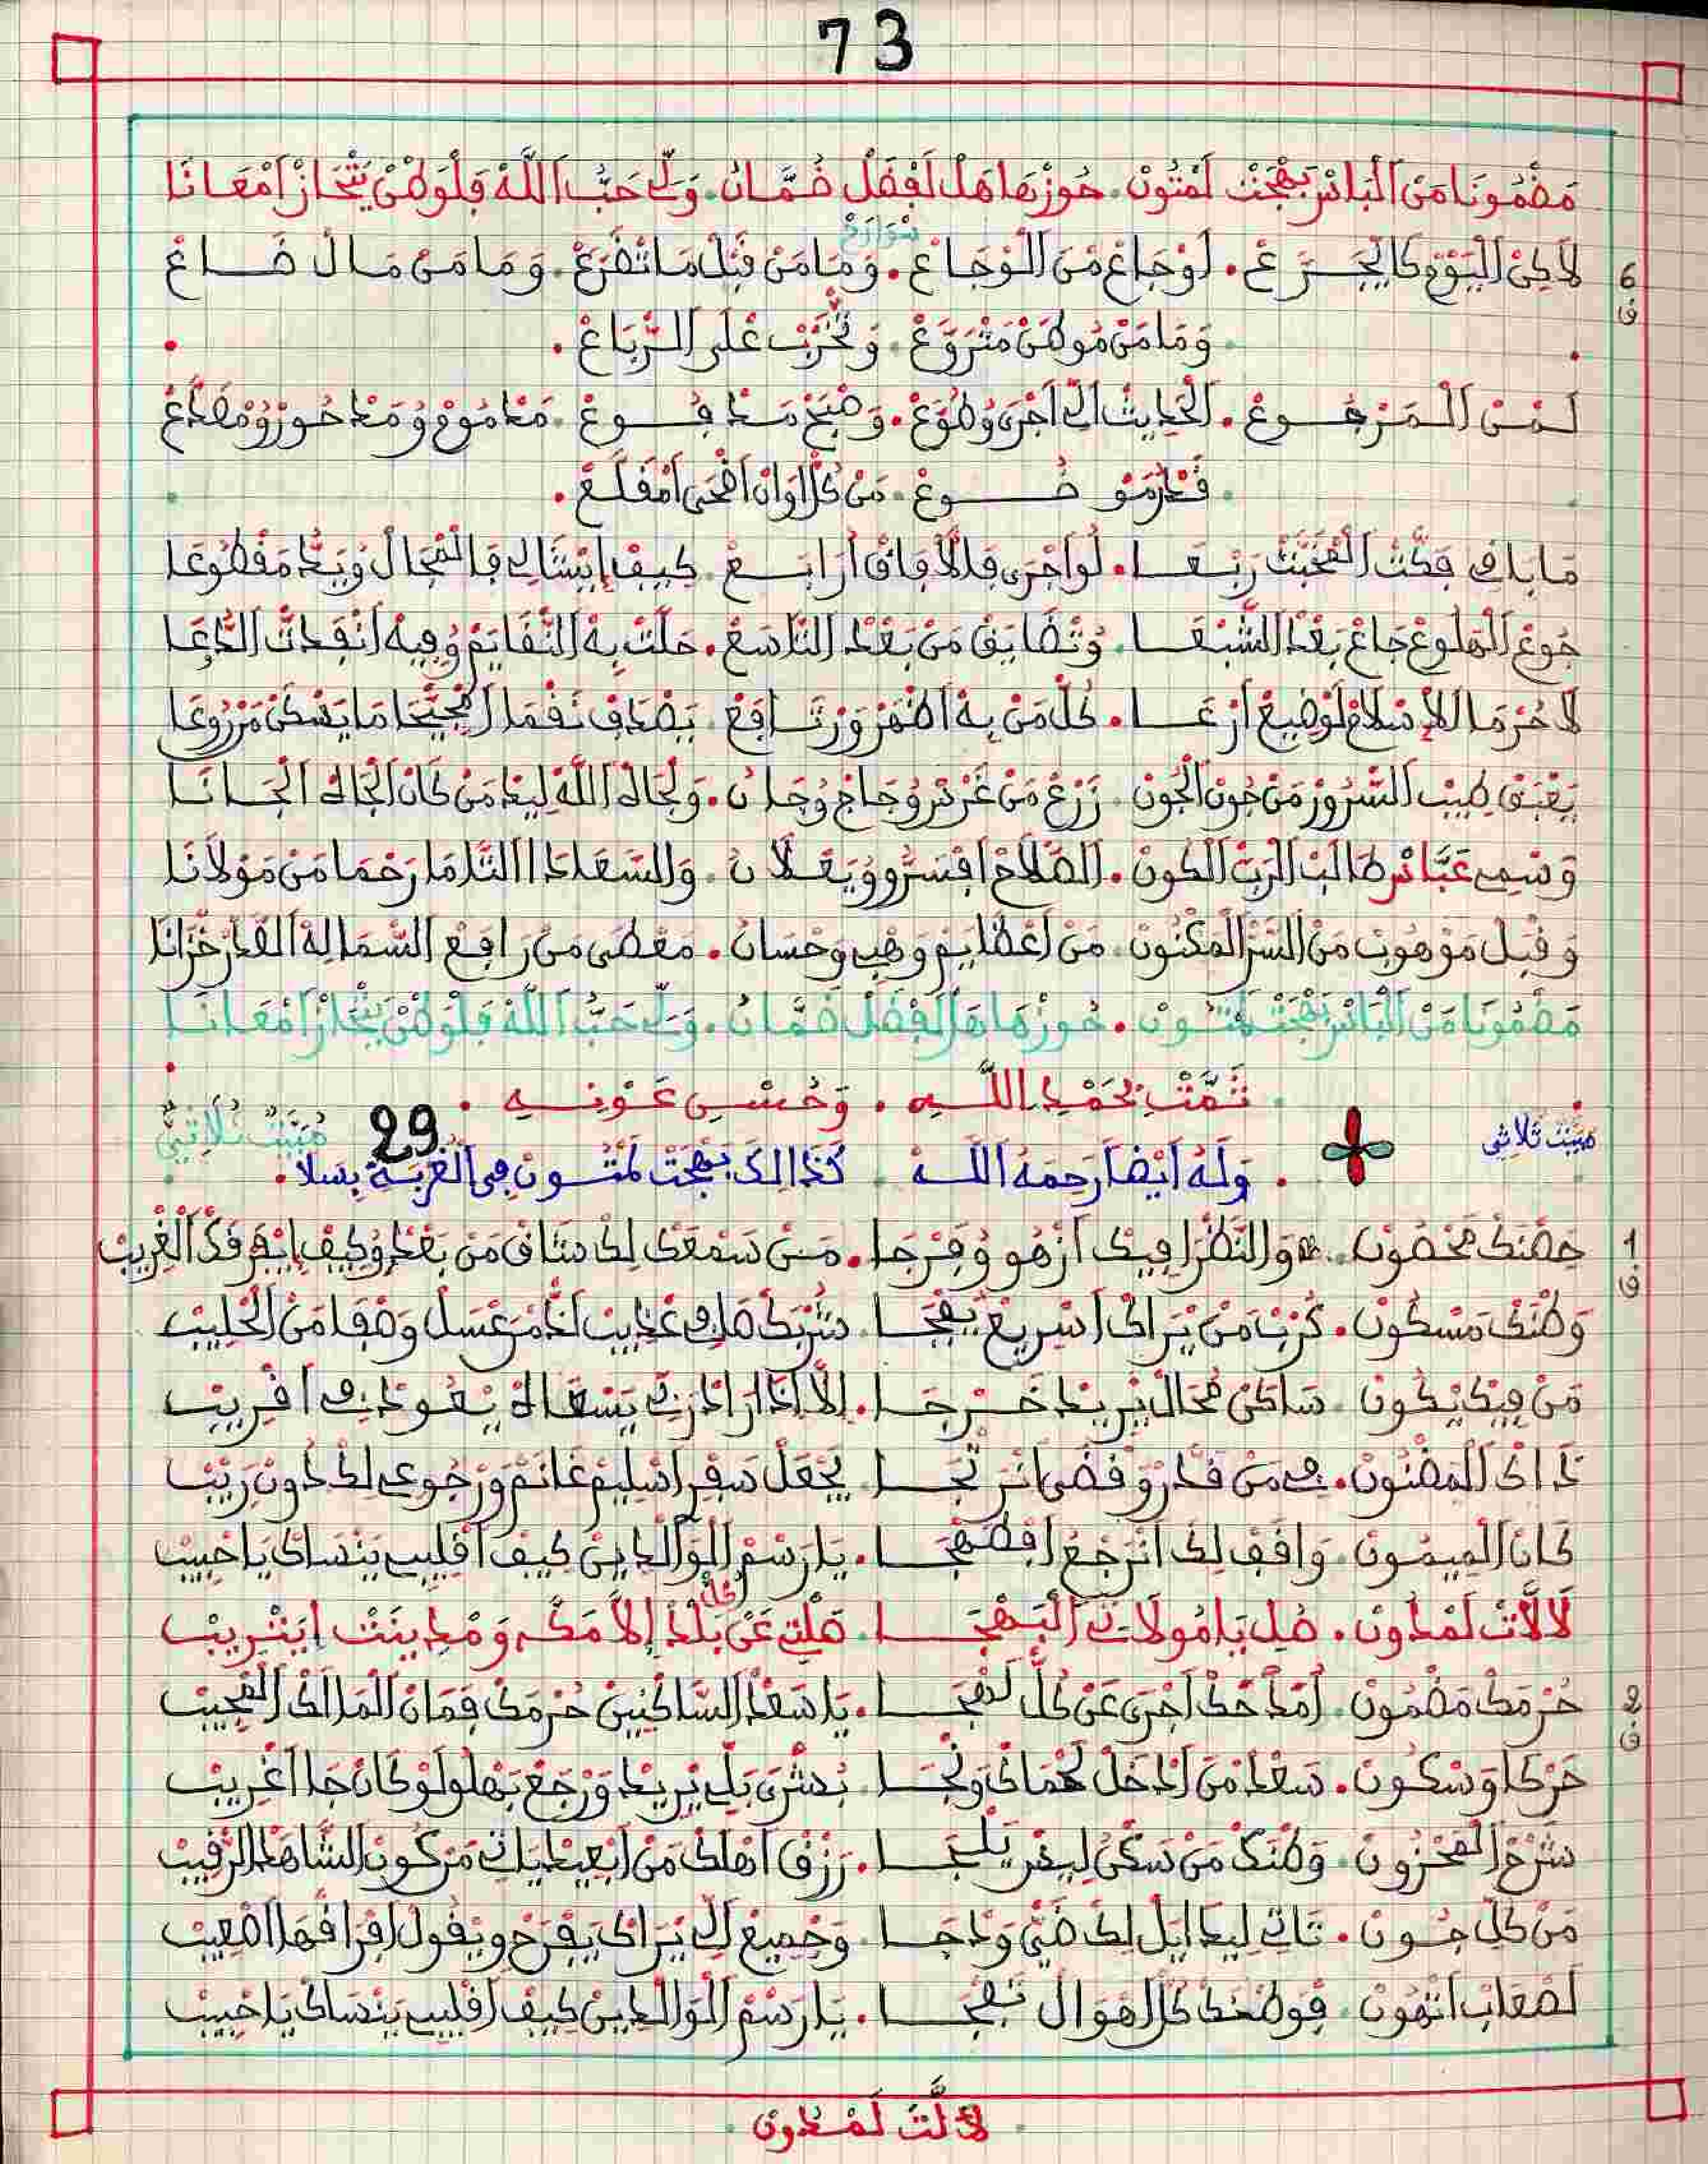 73
مَضْمُونَا مَنْ الْبَاسْ بَهْجَتْ لَمْتُونْ. حُوزْهَا هَلْ لَفْضَلْ ضُمَّانْ. وَلِّي حَبُّ اللَّهْ فَلْوَطْنْ يَتْجَازْ امْعَانَا
سْوَارَحْ
6 ف لَاكِنْ الْيَوْمْ كَا يْجَرَّعْ. لَوْجَاعْ مْنَ الْوْجَاعْ. وَمَا مَنْ قَبْلْ مَا تْفَرَّعْ. وَمَا مَنْ مَالْ ضَاعْ
وَمَا مَنْ مُوطَنْ مَتْرَوَّعْ. وَتْخَرَّبْ عْلَى الرْبَاعْ.
لَمْنْ الْمَرْجُوعْ. الْحَدِيثْ الِّي اجْرَى وُطَوَّعْ. وَصْبَحْ مَدْفُوعْ. مَذْمُومْ وُمَدْحُورْ وُمْصَدَّعْ
. مَنْ كُلّْ اوَانْ اضْحَى امْقَلَّعْ.
مَا بَافِي فَكَّتْ الْمْخَبَّتْ رَبْعَا. لُو اجْرَى فَلَافَاقْ ارَابَعْ. كِيفْ ايْتْشَالِي فَالْمْحَالْ وُيَدُّ مَقْطُوعَا
جُوعْ الْهَلُوعْ جَاعْ بَعْدْ الشَّبْعَا. وُتْضَايَقْ مَنْ بَعْدْ التَّاسَعْ. حَلَّتْ بِهْ النّْقَايَمْ وُفِيهْ انْفَدَتْ الدَّعَا
لَا حُرْمَا لِلْاسْلَامْ لَوْضِيعْ ارْعَا. كُلّْ مَنْ بِهْ اضْمَرْ وَرْتَافَعْ. يَصْدَفْ نَقْمَا مَا يَسْكَنْ مَرْرُوعَا
يَعْبَقْ طِيبْ السّْرُورْ مَنْ جُونْ الْجُونْ. زَرْعْ مَنْ غَرْبْ وُجَاحْ وُجَانْ. وَلْجَاهْ اللَّهْ لِيهْ مَنْ كَانْ الْجَاهْ الْجَانَا
وَسْمِي عَبَّاسْ طَالَبْ الرَّبّْ الْكُونْ. الصّْلَاحْ افْسَرُّو وُيَعْلَانْ. وَالسّْعَادَا التَّامَا رَحْمَا مَنْ مَوْلَانَا
وَقْبَلْ مَوْهُوبْ مَنْ السَّرّْ الْمَكْنُونْ. مَنْ اعْطَايَمْ وَهْبِي وَحْسَانْ. مَعْطَى مَنْ رَافَعْ السّْمَا لِهْ الْقَدْرْ خْزَانَا
مَضْمُونَا مَنْ الْبَاسْ بَهْجَتْ لَمْتُونْ. حُوزْهَا هَلْ لَفْضَلْ ضُمَّانْ. وَلِّي حَبُّ اللَّهْ فَلْوَطْنْ يَتْجَازْ امْعَانَا
. تَمَّتْ بِحَمْدِ اللَّهِ. وَحُسْنِ عَوْنِهِ.
مْبَيَّتْ ثُلَاثِي 29 مْبَيَّتْ ثُلَاثِيٌّ
. وَلَهُ أَيْضًا رَحِمَهُ اللَّهْ. كَذَالِكَ بَهْجَتْ لَمْتُونْ فِي الْغُرْبَةْ بِسَلَا.
1 ف حَصْنَكْ مَحْصُونْ. وَالنَّظْرَا فِيكْ ازْهُو وُفَرْجَا. مَنْ سَمْعَكْ لِكْ سَّاقْ مَنْ بَعْدْ وُكِيفْ ايْفَرْقَكْ الْغْرِيبْ
وَطْنَكْ مَسْكُونْ. كُرْبْ مَنْ يْرَاكْ اسْرِيعْ يَفْجَا. شُرْبَكْ صَافِي عْذِيبْ احْمَرْ عَسْلْ وَصْفَا مَنْ الْحْلِيبْ
مَنْ فِيكْ يْكُونْ. سَاكَنْ مُحَالْ يْرِيدْ خَرْجَا. إلَّا اذَا ارَادْ رَبِّي يَسْعَاهْ يْعُودْ فِي اقْرِيبْ
ذَاكْ الْمَضْنُونْ. فِي مَنْ قَدَّرْ وُقْضَى نَرْتْجَا. يَجْعَلْ سَفْرِي اسْلِيمْ غَانَمْ وَرْجُوعِي لِكْ دُونْ رِيبْ
كَانْ الْمِيمُونْ. وَافَقْ لِكْ انَرْجَعْ افْصَهْجَا. يَا رَسْمْ الْوَالْدِينْ كِيفْ اقْلِيبِي يَنْسَاكْ يَا حْبِيبْ
لَالَّاتْ لَمْدُونْ. صُلِي يَا مُولَاتِي الْبَهْجَا. صَلْتِي عَنْ كُلّْ بْلَادْ إلَّا مَكَّه وَمْدِينَتْ ايَثْرِيبْ
2 ف حُرْمَكْ مَضْمُونْ. امْدَحَكْ اجْرَى عَنْ كُلّْ لَهْجَا. يَا سَعْدْ السَّاكْنِينْ حُرْمَكْ فَمَانْ الْمَالَكْ الْمْجِيبْ
حَرْكَا وَسْكُونْ. سَعْدْ مَنْ ادْخَلْ لَحْمَاكْ وَنْجَا. بُشْرَى بَلِّي يْرِيدْ وَرْجَعْ بَهْلُو لَوْ كَانْ جَا اغْرِيبْ
شَرْحْ الْمَحْزُونْ. وَطْنَكْ مَنْ سَكْنُ لِيغَرْ يَلْجَا. رَزْقْ اهْلَكْ مَنْ ابْعِيدْ يَاتِي مَنْ كُونْ الشَّاهَدْ الرّْقِيبْ
مَنْ كُلّْ جُونْ. تَاتِي لِيدْ ايَلْ لِكْ ضَيّْ وَدْجَا. وَجْمِيعْ الِّي يْرَاكْ يَفْرَحْ وِيقُولْ افْرَاقْهَا اصْعِيبْ
لَصْعَابْ انْهُونْ. فَوْطْنَكْ كُلّْ اهْوَالْ تَفْجَا. يَا رَسْمْ الْوَالْدِينْ كِيفْ اقْلِيبِي يَنْسَاكْ يَا حْبِيبْ
. لَالَّتْ لَمْدُونْ.